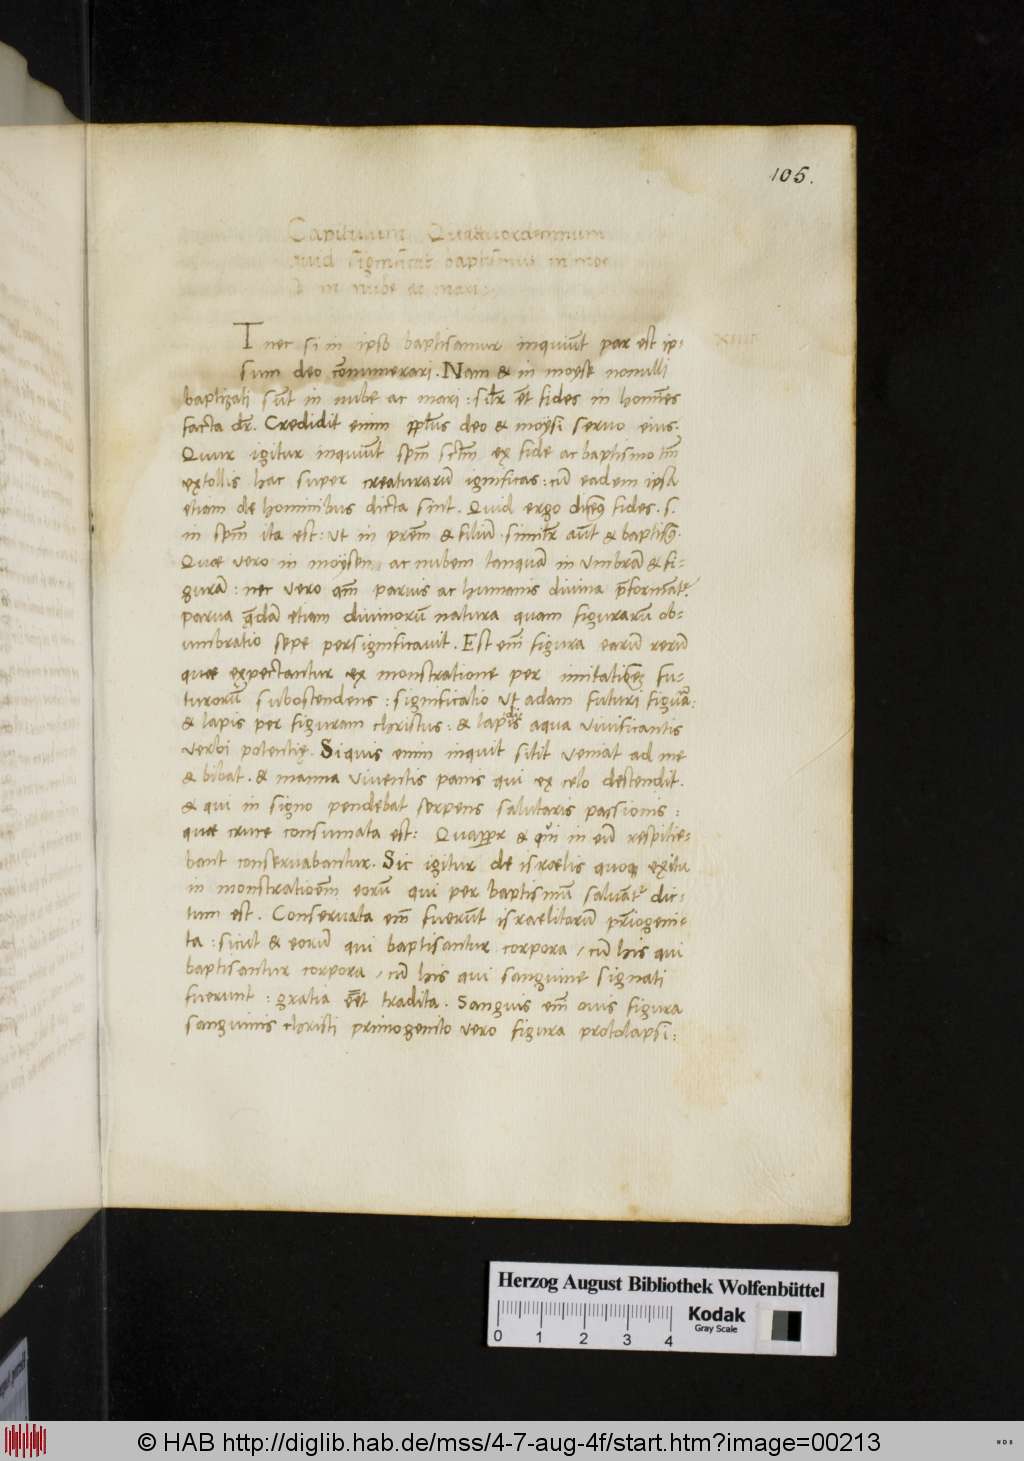 105.
Capitulum Quattuordecimum
quid significat baptismus in moe
in nube ac mari
XIIII
T nec si in ipso baptisamur inquiūt par est ip-
sum deo cōnumerari. Nam & in moyse nonulli
baptizati sūt in nube ac mari : sil̄r ēt fides in hoīnes
facta dr̄. Credidit enim pp̄lus deo & moysi servo eius.
Quur igitur inquiūt sp̄m sctm̄ ex fide ac baptismo tm̄
extollis hac super creaturarū ignificas : cū eadem ipsa
etiam de hominibus dicta sint. Quid ergo fides. s.
in sp̄m ita est : ut in prēm & filiū. simil̄r aūt & baptism̄.
Quae vero in moysen ac nubem tanquā in umbrā & fi-
gurā : nec vero qm̄ parvis ac humanis divina p̄formāt˜
parva etiam divinorū natura quam figurarū ob-
umbratio sepe persignificavit. Est em̄ figura earū rerū
quae expectantur ex monstratione per fu-
turorū subostendens : significatio ut adam futuri figurā :
& lapis per figuram christus : & aqua vivificantis
verbi potentię. Siquis enim inquit sitit veniat ad me
& bibat. & manna viventis panis qui ex celo destendit.
& qui in signo pendebat serpens salutaris passionis :
quae cruce consumata est : Quapp̄r & qui in eū respitie-
bant conservabantur. Sic igitur de israelis quoq exitu
in monstratiōem eorū qui per baptismū salvāt˜ dic-
tum est. Conservata em̄ fuerūt israelitarū prīogenie
ta : sicut & eorū qui baptisantur corpora / cū his qui
baptisantur corpora / cū his qui sanguine signati
fuerunt : gratia eēt tradita. Sanguis em̄ ovis figura
sanguinis christi primogenito vero figura protolapsi :
Herzog August Bibliothek Wolfenbüttel
Kodak
Gray Scale
0 1 2 3 4
© HAB http://diglib.hab.de/mss/4-7-aug-4f/start.htm?image=00213